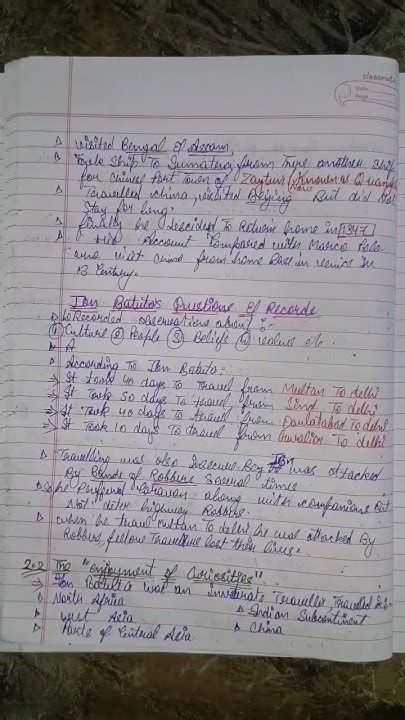 classmate
Date
Page
▷ visited Bengal & Assam
Take Ship To Sumatera, from there another Ship
for Chinese Port Town of Zaytun (Known as Quanzhou
Now
▷ Travelled China, visited Beijing But did Not
Stay for long.
▷ finally he decided To Return home in 1347
▷ His Account Compared with Marco Polo
who visit China from home Base in venice in
13 Century.
Ibn Batuta's Questions Of Records
▷ Recorded observations about :-
① Culture ② People ③ Beliefs ④ values etc.
▷ A
▷ According To Ibn Batuta:
→ It took 40 days to Travel from Multan To delhi
→ It Took 50 days To travel from Sind To delhi
→ It Took 40 days To travel from Daulatabad To delhi
→ It Took 10 days To travel from Gwalior To delhi
▷ Travelling was also Insecure Ibn was attacked
By Bands of Robbers Several times
▷ he Prefered Caravan along with companions But
Not deter highway Robbers.
▷ when he travel multan To delhi he was attacked By
Robbers, fellow Travellers lost their lives.
2.2 The "enjoyment of Curiosities"
→ Ibn Batuta was an Inveterate Traveller, Travelled
North Africa
▷ Indian Subcontinent
▷ West Asia
▷ China
▷ Parts of Central Asia